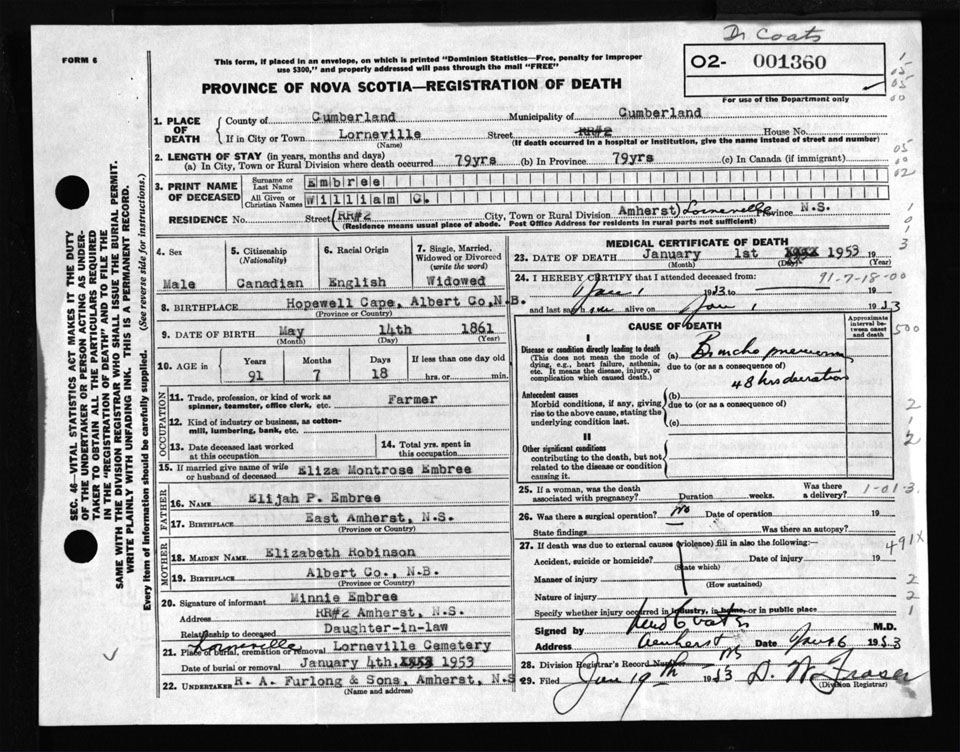 Dr Coats
FORM 6
This form, if placed in an envelope, on which is printed "Dominion Statistics—Free, penalty for improper
use $300," and properly addressed will pass through the mail "FREE"
O2- 001360
For use of the Department only
PROVINCE OF NOVA SCOTIA—REGISTRATION OF DEATH
SEC. 46—VITAL STATISTICS ACT MAKES IT THE DUTY
OF THE UNDERTAKER OR PERSON ACTING AS UNDER-
TAKER TO OBTAIN ALL THE PARTICULARS REQUIRED
IN THE "REGISTRATION OF DEATH" AND TO FILE THE
SAME WITH THE DIVISION REGISTRAR WHO SHALL ISSUE THE BURIAL PERMIT.
WRITE PLAINLY WITH UNFADING INK. THIS IS A PERMANENT RECORD.
Every item of information should be carefully supplied. (See reverse side for instructions.)
1. PLACE OF DEATH
County of Cumberland Municipality of Cumberland
If in City or Town Lorneville Street RR#2 House No.
(Name) (If death occurred in a hospital or institution, give the name instead of street and number)
2. LENGTH OF STAY (in years, months and days)
(a) In City, Town or Rural Division where death occurred 79yrs (b) In Province 79yrs (c) In Canada (if immigrant)
3. PRINT NAME OF DECEASED
Surname or Last Name Embree
All Given or Christian Names William C.
RESIDENCE No. Street RR#2 City, Town or Rural Division Amherst Lorneville Province N.S.
(Residence means usual place of abode. Post Office Address for residents in rural parts not sufficient)
4. Sex
Male
5. Citizenship
(Nationality)
Canadian
6. Racial Origin
English
7. Single, Married,
Widowed or Divorced
(write the word)
Widowed
8. BIRTHPLACE Hopewell Cape, Albert Co,N.B.
(Province or Country)
9. DATE OF BIRTH May 14th 1861
(Month) (Day) (Year)
10. AGE in
Years Months Days If less than one day old
91 7 18 hrs. or min.
OCCUPATION
11. Trade, profession, or kind of work as
spinner, teamster, office clerk, etc. Farmer
12. Kind of industry or business, as cotton-
mill, lumbering, bank, etc.
13. Date deceased last worked
at this occupation
14. Total yrs. spent in
this occupation
15. If married give name of wife
or husband of deceased Eliza Montrose Embree
FATHER
16. NAME Elijah P. Embree
17. BIRTHPLACE East Amherst, N.S.
(Province or Country)
MOTHER
18. MAIDEN NAME Elizabeth Robinson
19. BIRTHPLACE Albert Co., N.B.
(Province or Country)
20. Signature of informant Minnie Embree
Address RR#2 Amherst, N.S.
Relationship to deceased Daughter-in-law
Lorneville
21. Place of burial, cremation or removal Lorneville Cemetery
Date of burial or removal January 4th, 1953
22. UNDERTAKER R. A. Furlong & Sons, Amherst, N.S
(Name and address)
MEDICAL CERTIFICATE OF DEATH
23. DATE OF DEATH January 1st 1953
(Month) (Day) (Year)
91-7-18-00
24. I HEREBY CERTIFY that I attended deceased from:
Jan 1 1953 to 19
and last saw him alive on Jan 1 1953
CAUSE OF DEATH
Approximate
interval be-
tween onset
and death
I
Disease or condition directly leading to death
(This does not mean the mode of
dying, e.g., heart failure, asthenia,
etc. It means the disease, injury, or
complication which caused death.)
(a) Broncho pneumonia
due to (or as a consequence of)
48 hrs duration
Antecedent causes
Morbid conditions, if any, giving
rise to the above cause, stating the
underlying condition last.
(b)
due to (or as a consequence of)
(c)
II
Other significant conditions
contributing to the death, but not
related to the disease or condition
causing it.
25. If a woman, was the death
associated with pregnancy? Duration weeks. Was there
a delivery?
1-01-3
26. Was there a surgical operation? no Date of operation 19
State findings Was there an autopsy?
27. If death was due to external causes (violence) fill in also the following:—
491X
Accident, suicide or homicide? Date of injury 19
(State which)
Manner of injury
(How sustained)
Nature of injury
Specify whether injury occurred in industry, in home, or in public place
Signed by M.D.
Address Amherst Date Jan 6 1953
28. Division Registrar's Record Number
29. Filed Jan 19th 1953 D. W. Fraser
(Division Registrar)
1
05
05
00
05
00
02
1
0
1
3
500
2
2
2
2
1